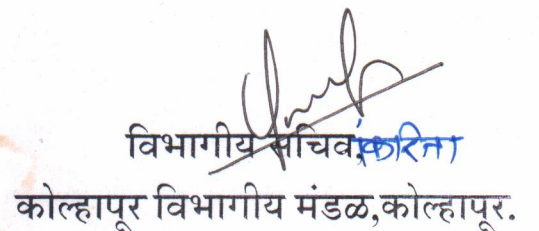 विभागीय सचिव,करिता
कोल्हापूर विभागीय मंडळ,कोल्हापूर.